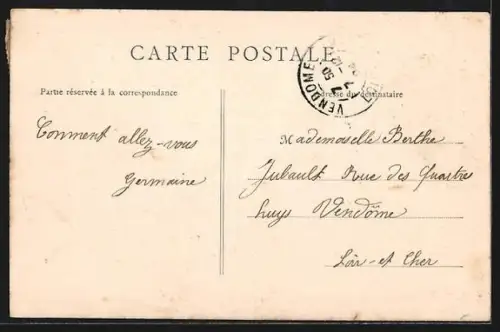 CARTE POSTALE
Partie réservée à la correspondance
Adresse du destinataire
VENDOME
Comment allez-vous
Germaine
Mademoiselle Berthe
Jubault Rue des Quatre
huys Vendôme
Loir-et Cher